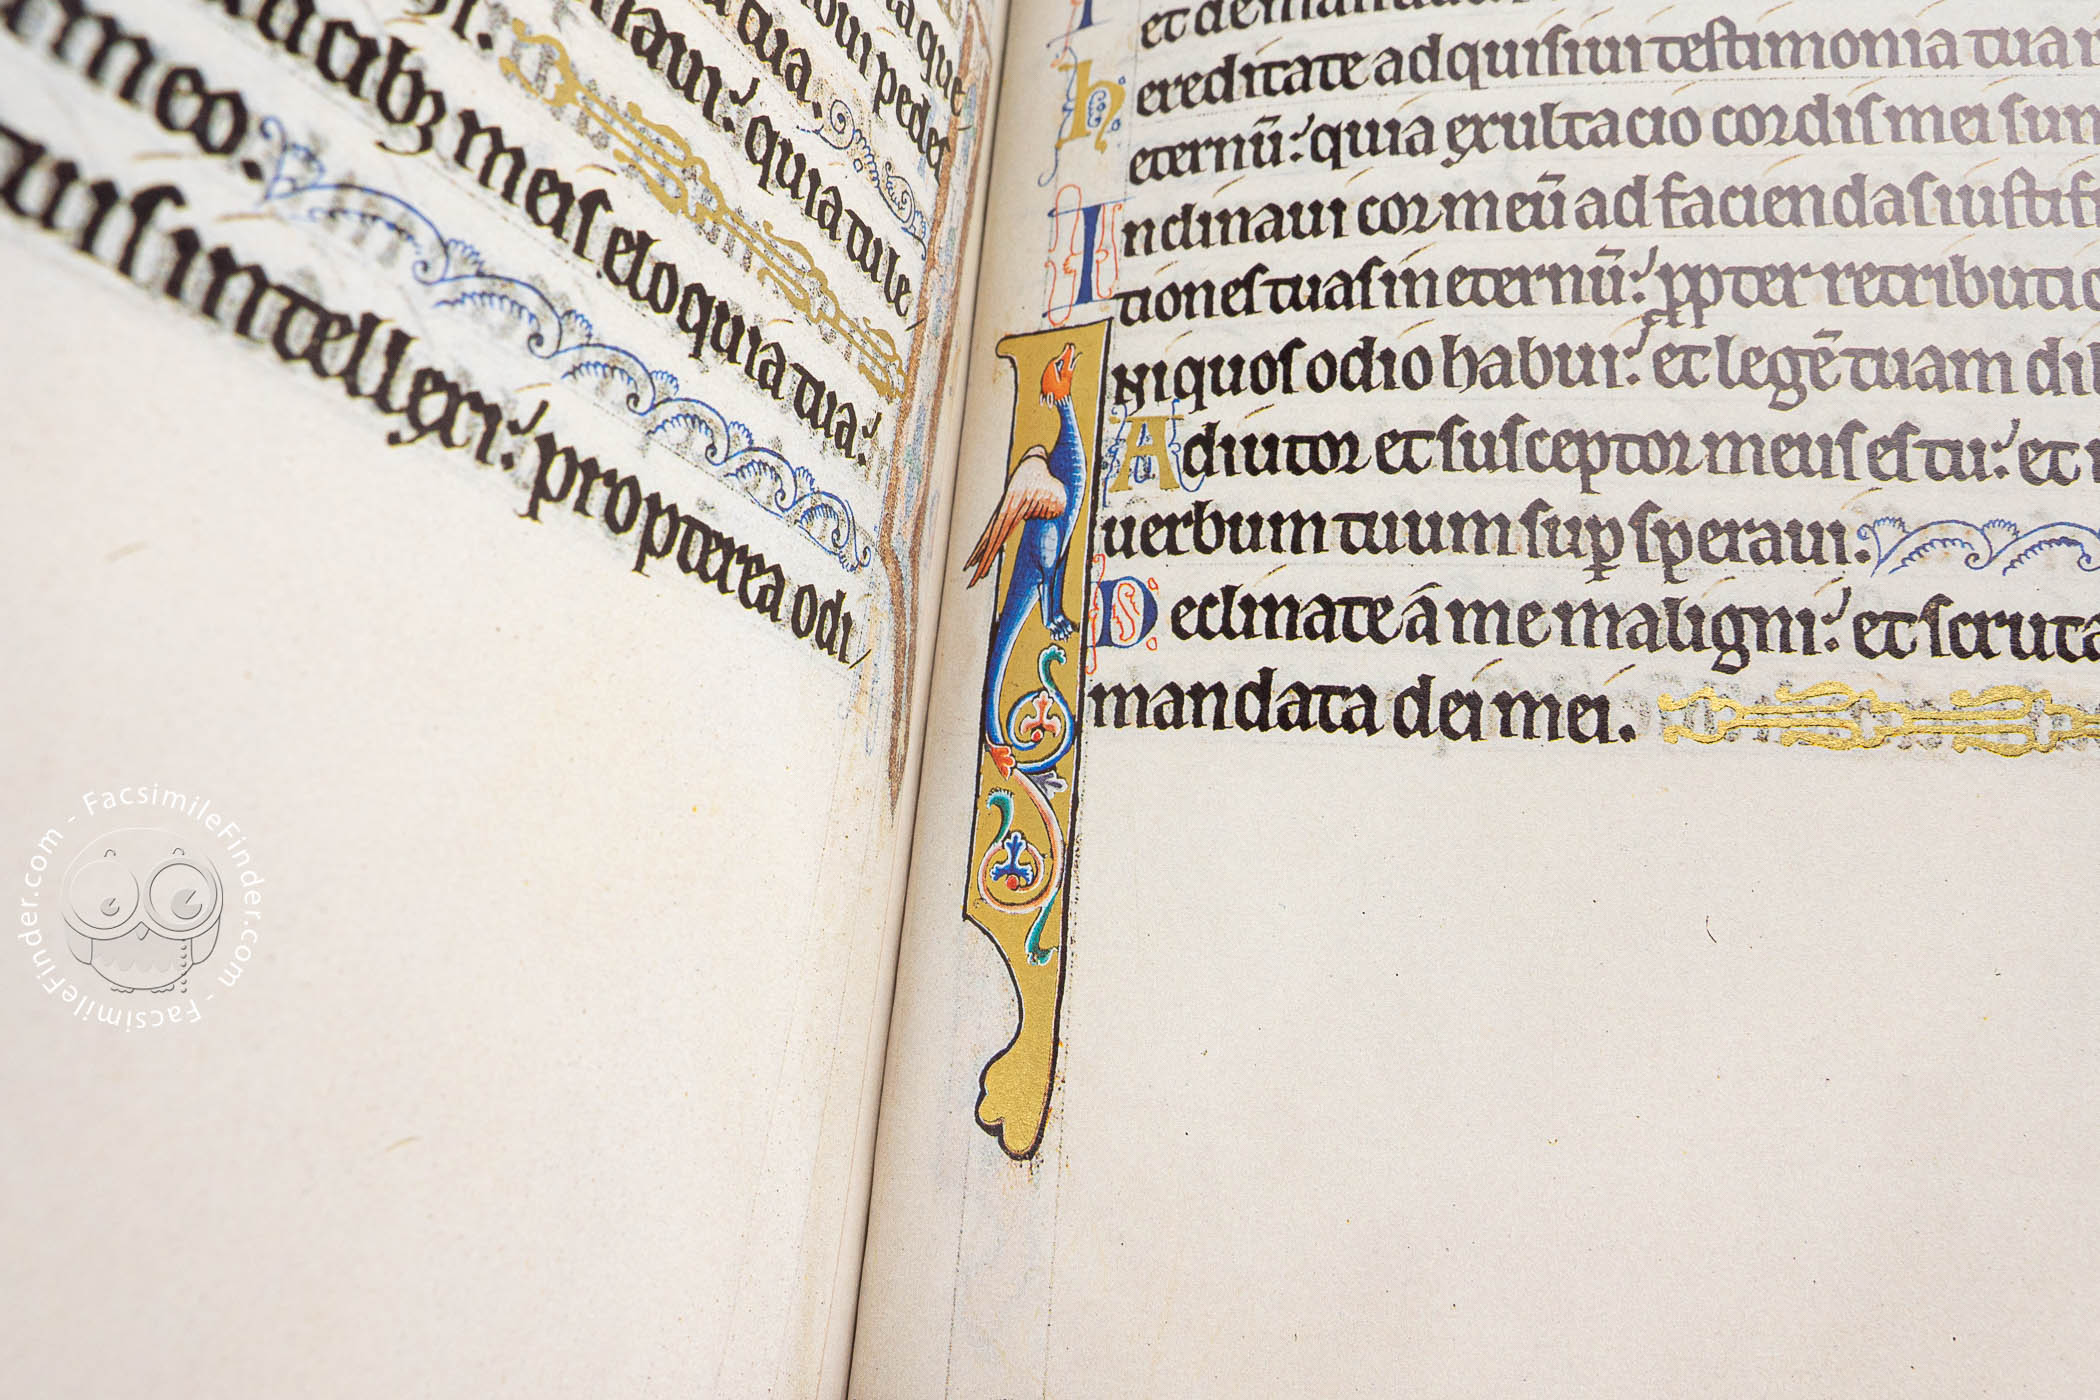 aque
oui pedes
a tua.
nam: quia tule
gi.
ucibꝫ meis eloquia tua:
meo.
tuis intellexi: propterea odi
et demandaui
hereditate adquisiui testimonia tua in
eternū: quia exultacio cordis mei sun
Inclinaui cor meū ad faciendas iustifi
tiones tuas in eternū: ꝓpter retributio
Iniquos odio habui: et legē tuam dil
Adiutor et susceptor meus es tu: et i
uerbum tuum suꝑ speraui.
Declinate á me maligni: et scruta
mandata dei mei.
FacsimileFinder.com - FacsimileFinder.com - FacsimileFinder.com